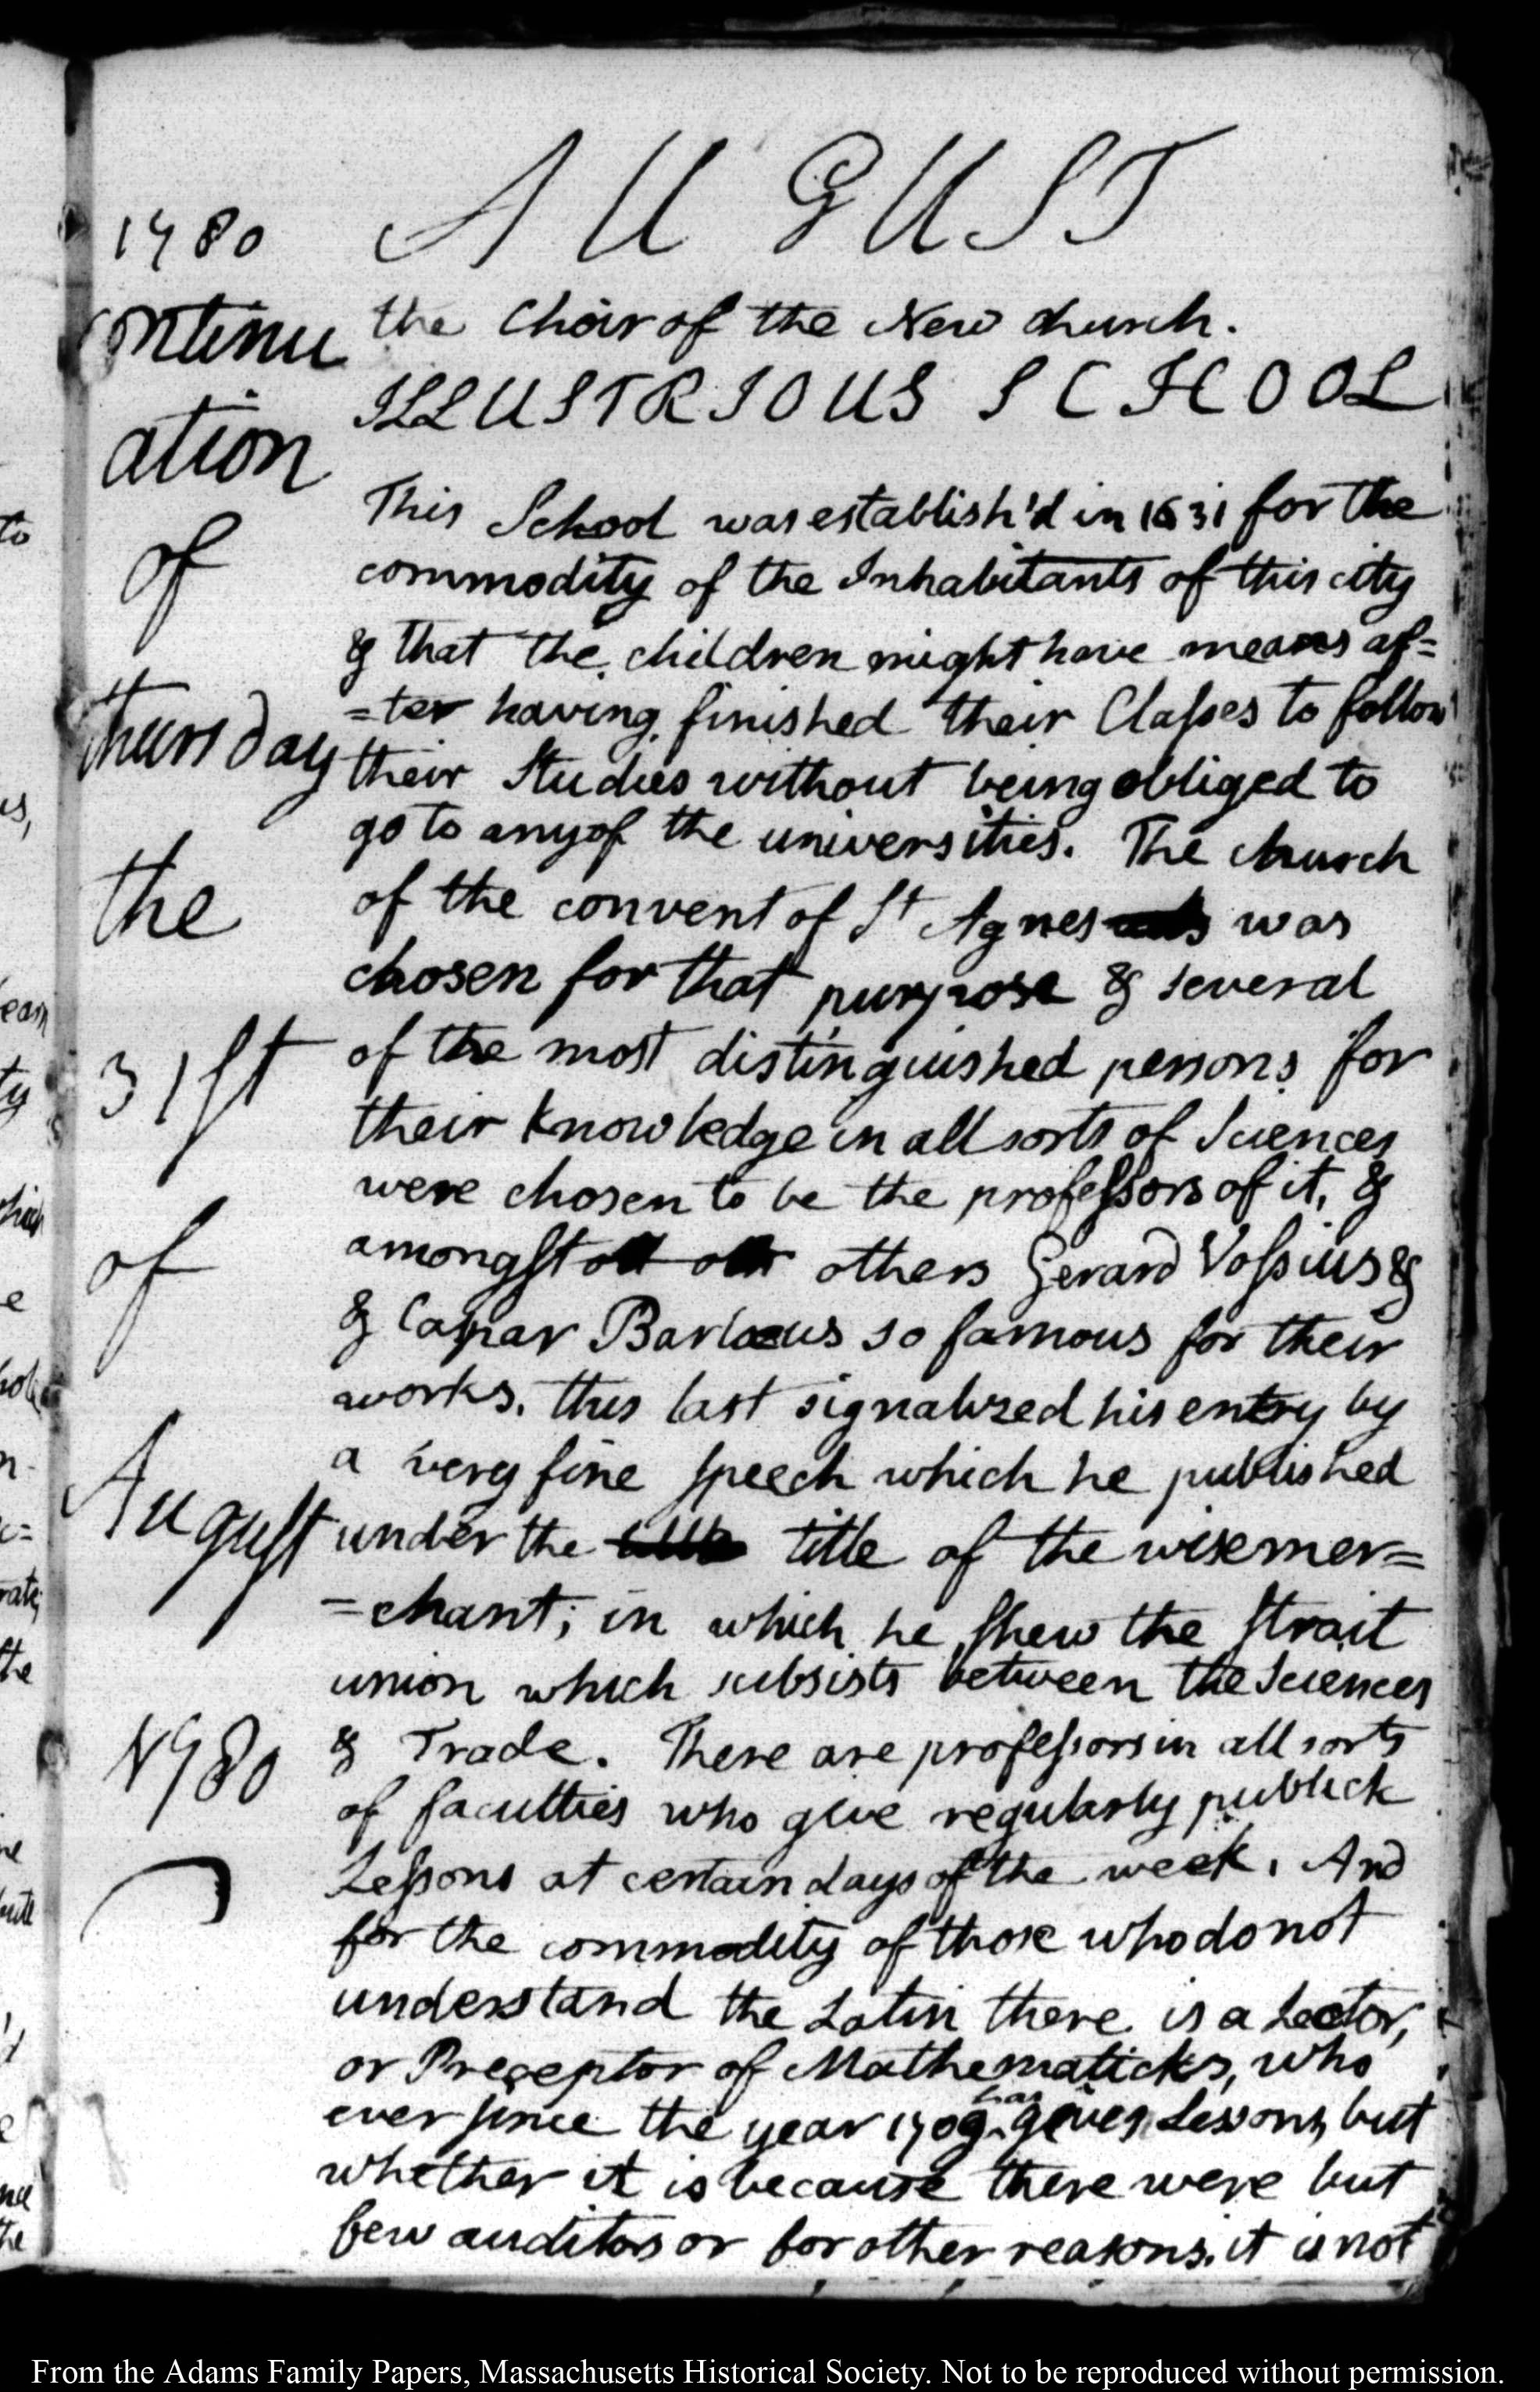 1780
AUGUST
Continu
ation
of
thursday
the
31st
of
August
1780
the Choir of the New church.
ILLUSTRIOUS SCHOOL
This School was establish'd in 1631 for the
commodity of the Inhabitants of this city
& that the children might have means af=
=ter having finished their Classes to follow
their Studies without being obliged to
go to any of the universities. The church
of the convent of St Agnes was
chosen for that purpose & several
of the most distinguished persons for
their knowledge in all sorts of Sciences
were chosen to be the professors of it, &
amongst others Gerard Vossius &
& Caspar Barlaeus so famous for their
works. this last signalized his entry by
a very fine speech which he published
under the title of the wise mer=
=chant; in which he shew the strait
union which subsists between the Sciences
& Trade. There are professors in all sorts
of faculties who give regularly publick
Lessons at certain days of the week. And
for the commodity of those who do not
understand the Latin there is a Lector,
or Preceptor of Mathematicks, who
ever since the year 1709 has given Lessons, but
whether it is because there were but
few auditors or for other reasons. it is not
From the Adams Family Papers, Massachusetts Historical Society. Not to be reproduced without permission.